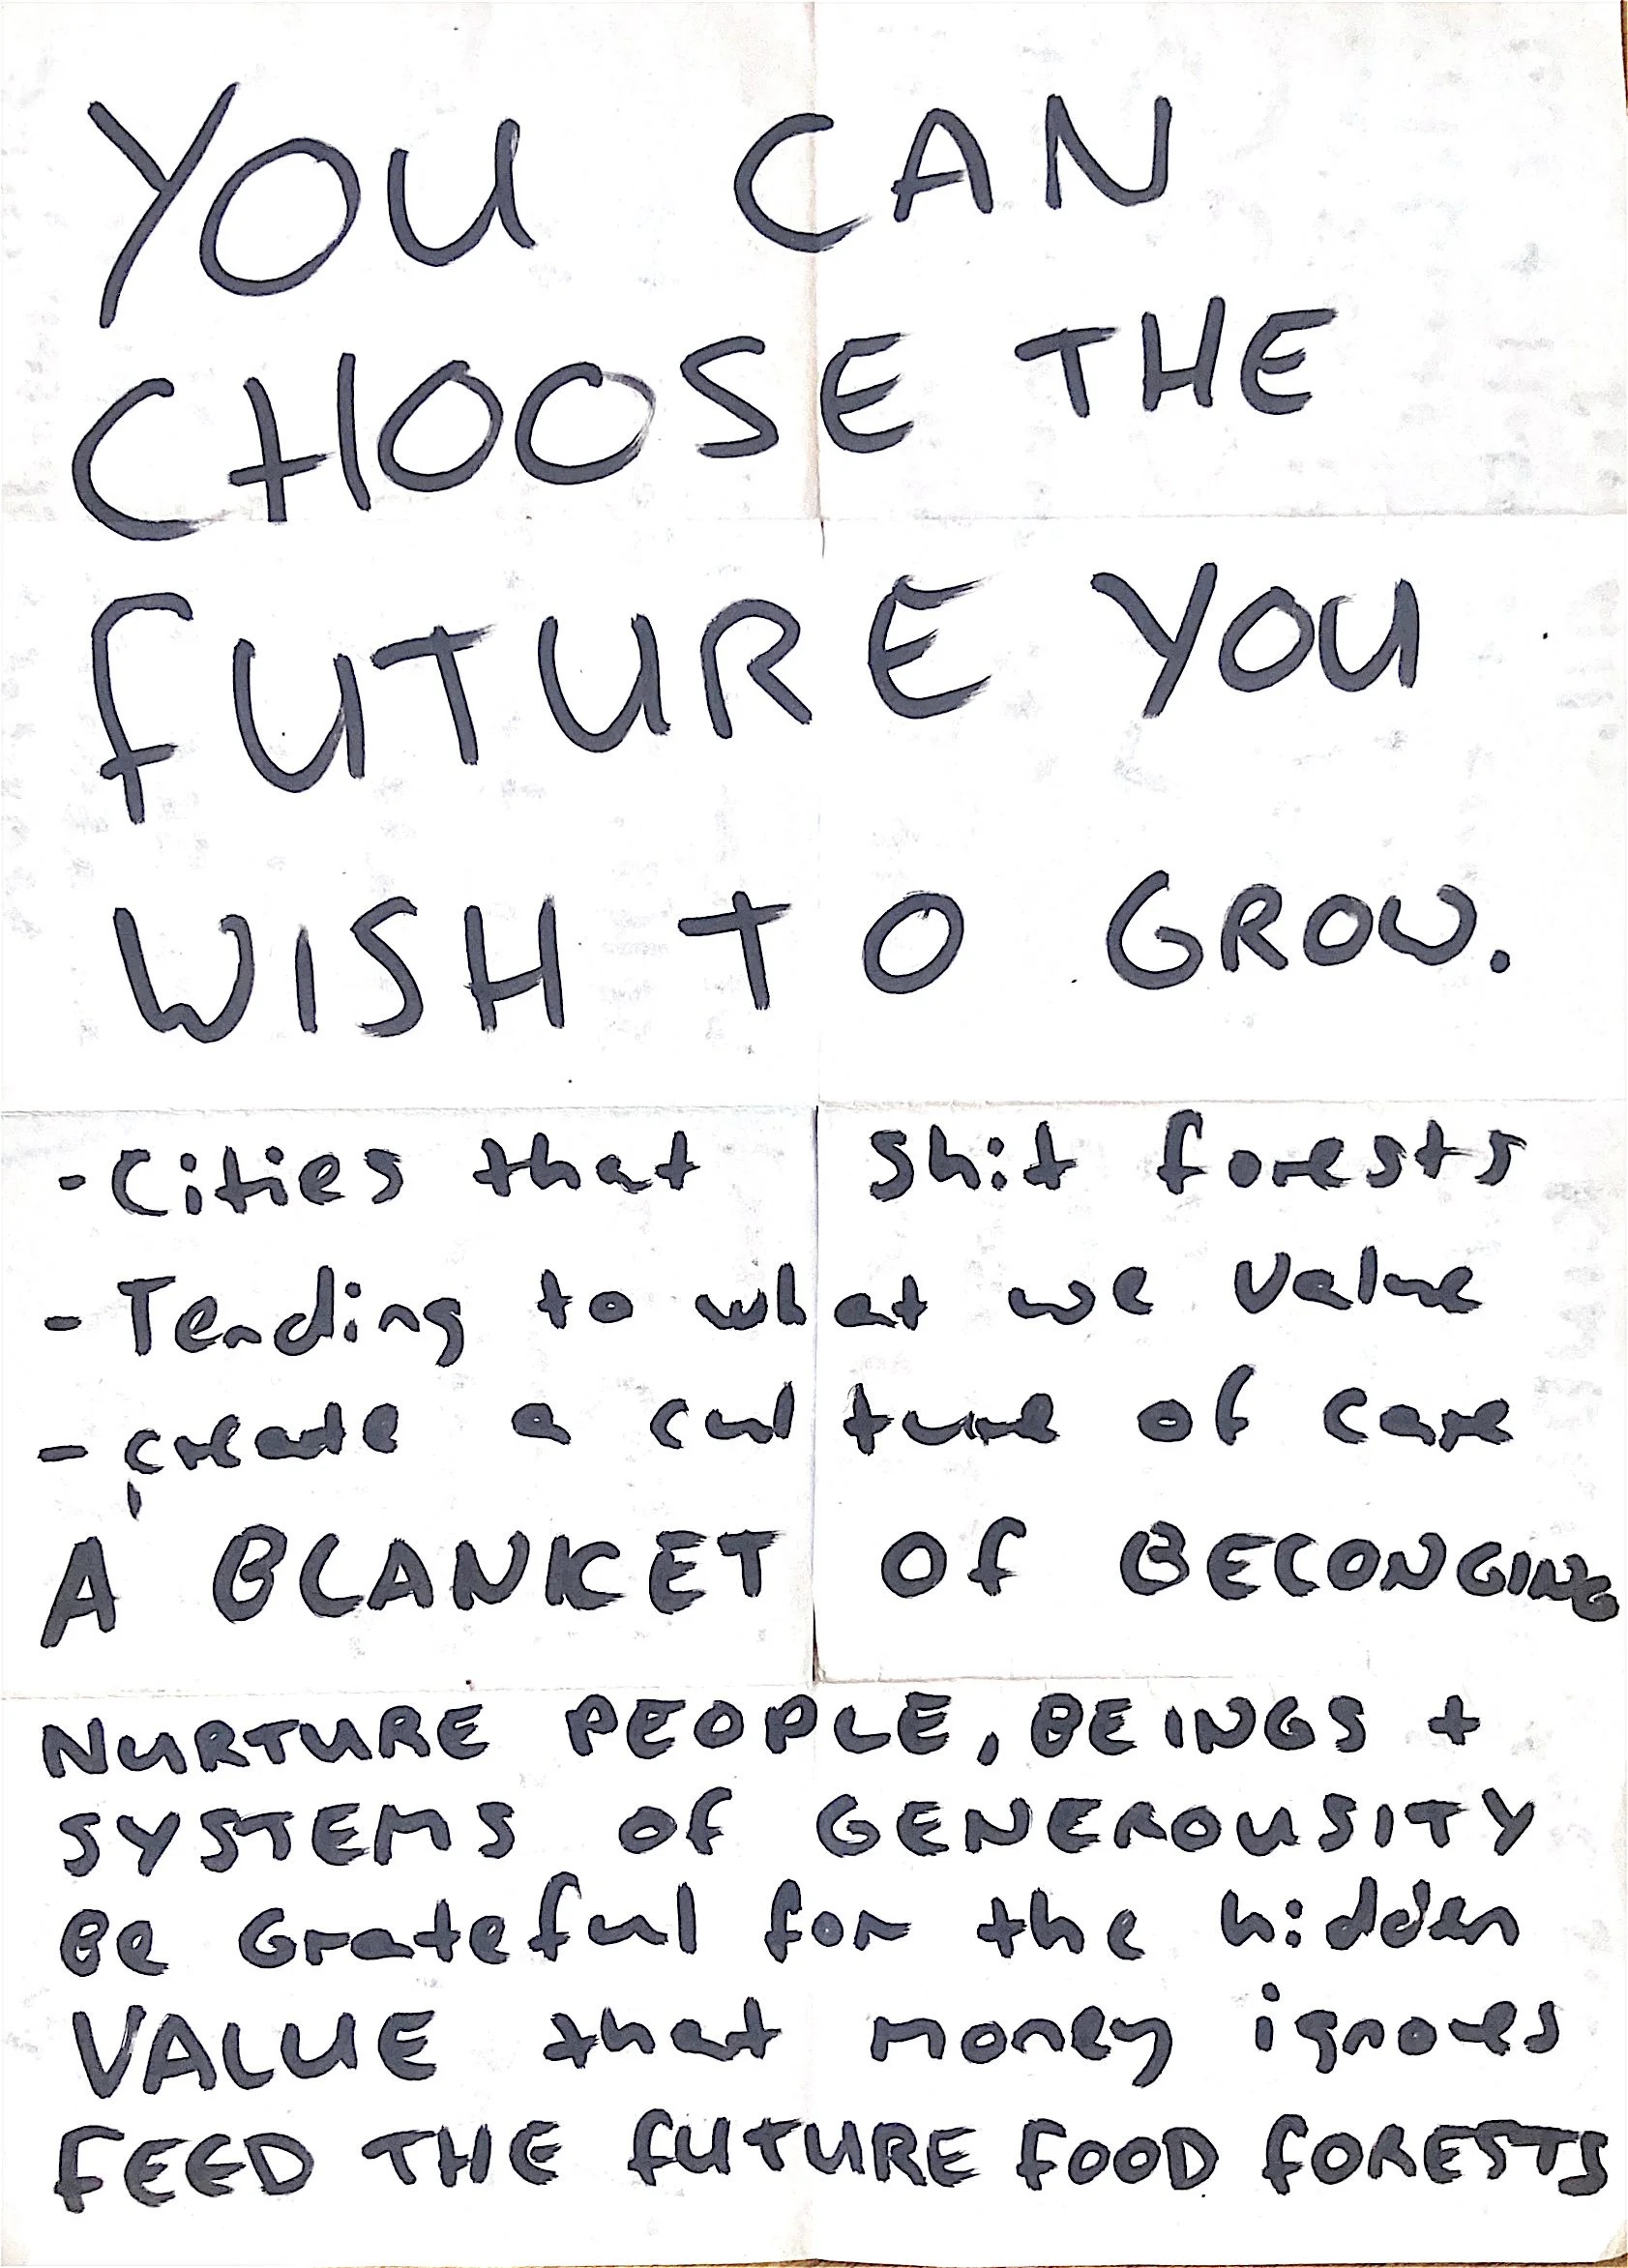 YOU CAN
CHOOSE THE
FUTURE YOU
WISH TO GROW.
- Cities that shit forests
- Tending to what we value
- create a culture of care
A BLANKET OF BELONGING
NURTURE PEOPLE, BEINGS +
SYSTEMS OF GENEROUSITY
Be Grateful for the hidden
VALUE that money ignores
FEED THE FUTURE FOOD FORESTS